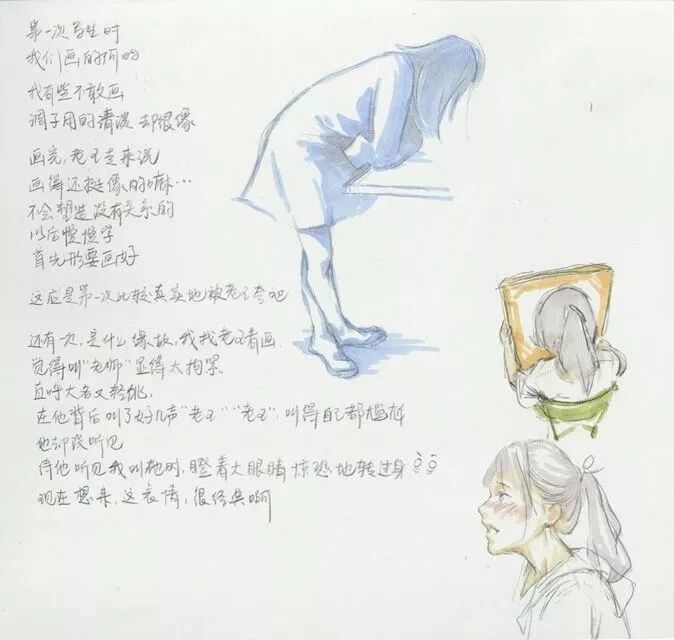 第一次写生时
我们画的阿的
我有些不敢画
调子用的清淡 却很像
画完,老王走来说
画得还挺像的嘛…
不会塑造没有关系的
以后慢慢学
首先形要画好
这应是第一次比较真实地被老王夸吧
还有一次,是什么缘故,我找老王看画
觉得叫“老师”显得太拘束.
直呼大名又轻佻,
在他背后叫了好几声“老王”“老王”,叫得自己都尴尬
他却没听见
待他听见我叫他时,瞪着大眼睛惊恐地转过身
现在想来,这表情,很经典啊